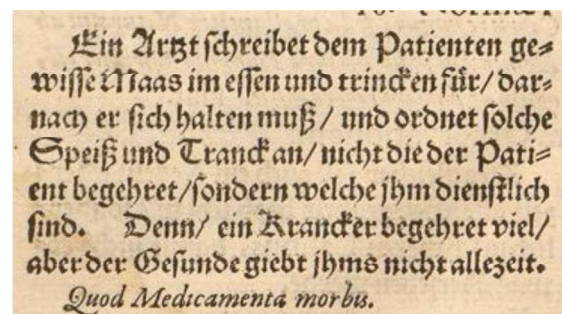 Ein Artzt schreibet dem Patienten ge⸗
wisse Maas im essen und trincken für/ dar⸗
nach er sich halten muß / und ordnet solche
Speiß und Tranck an/ nicht die der Pati⸗
ent begehret/sondern welche jhm dienstlich
sind. Denn/ ein Krancker begehret viel/
aber der Gesunde giebt jhms nicht allezeit.
Quod Medicamenta morbis.